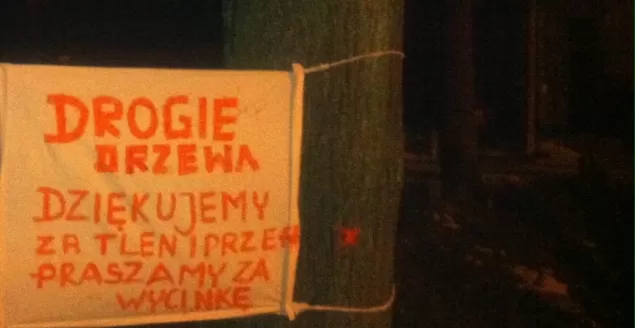 DROGIE
DRZEWA
DZIĘKUJEMY
ZA TLEN I PRZE
PRASZAMY ZA
WYCINKĘ